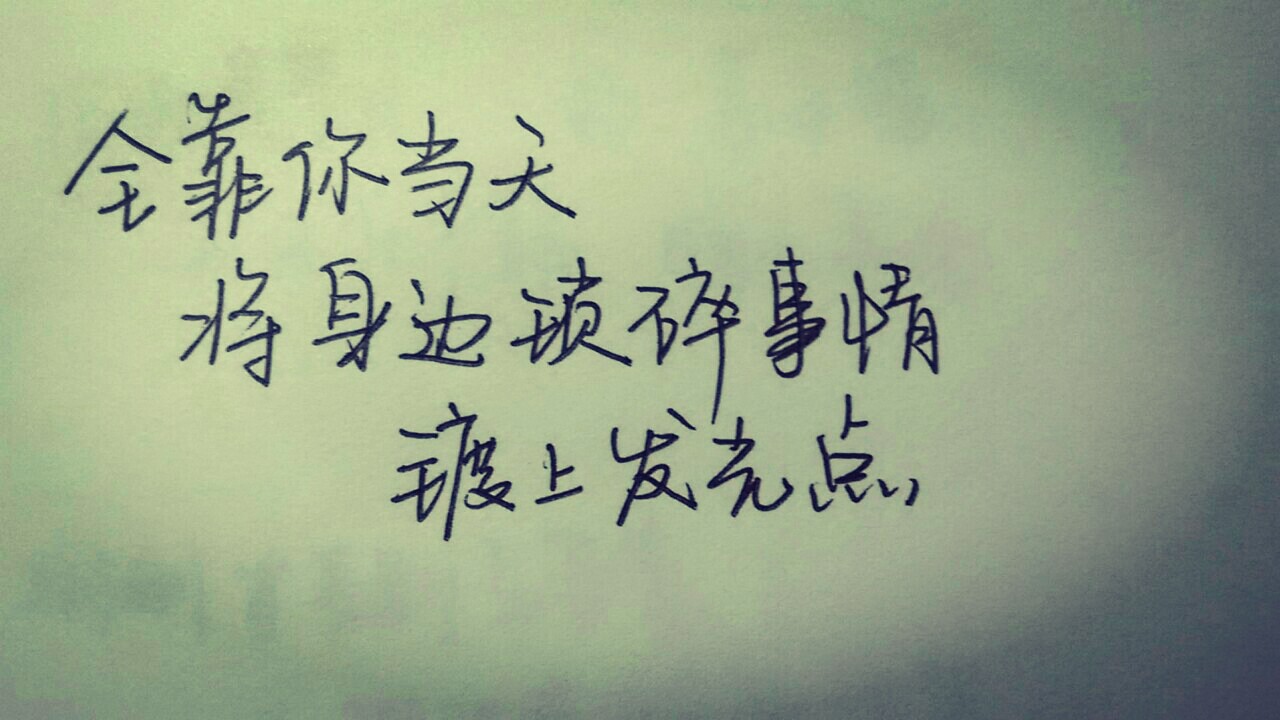 全靠你当天
将身边琐碎事情
镀上发光点